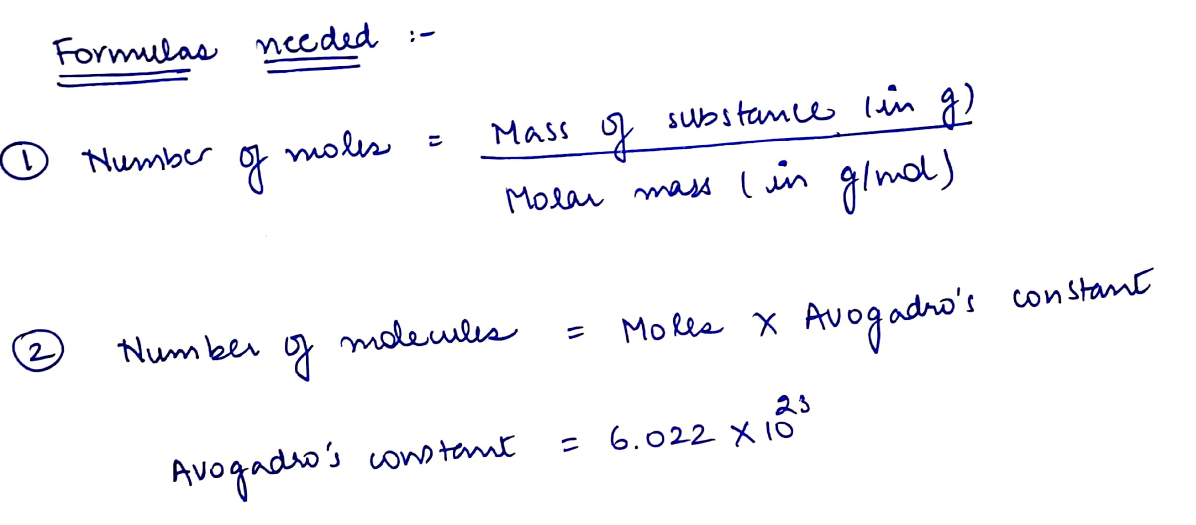 Formulas needed :-
① Number of moles = Mass of substance (in g)
Molar mass (in g/mol)
② Number of molecules = Moles × Avogadro's constant
Avogadro's constant = 6.022 × 10²³